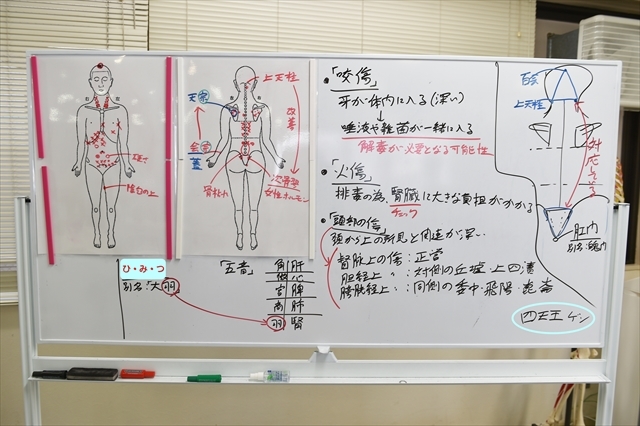 上天柱
改善
天宗
蓋
仙骨部
女性ホルモン
ひ・み・つ
別名:「大羽」
「五音」
角 肝
徴 心
宮 脾
商 肺
羽 腎
・「咬傷」
牙が体内に入る(深い)
唾液や雑菌が一緒に入る
解毒が必要となる可能性
・「火傷」
排毒の為、腎臓に大きな負担がかかる
チェック
・「頭部の傷」
頭から上の所見と関連が深い
督脈上の傷:正営
胆経上 〃 :対側の丘墟 上四瀆
膀胱経上 〃 :同側の委中・飛陽・崑崙
百会
上天柱
対応する
肛門
四天王